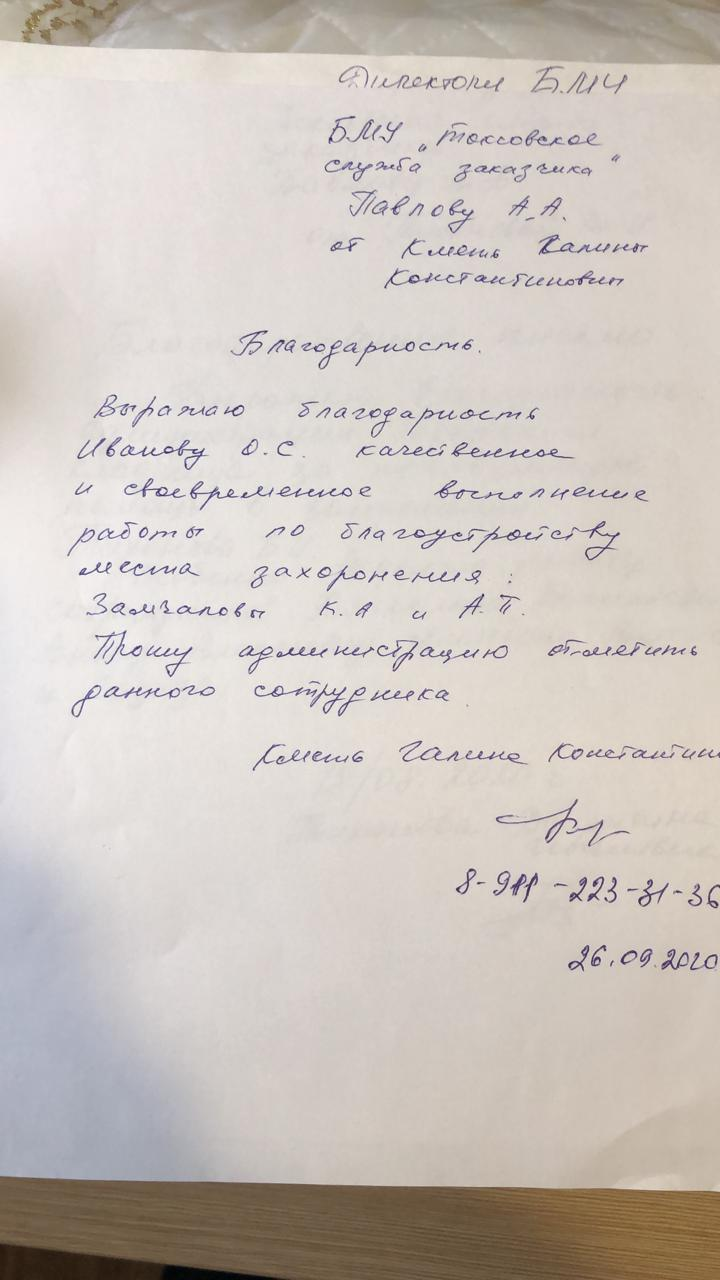 Директору БМУ
БМУ „Токсовское
служба заказчика"
Павлову А.А.
от Кметь Галины
Константиновны
Благодарность.
Выражаю благодарность
Иванову О.С. качественное
и своевременное выполнение
работы по благоустройству
места захоронения:
К.А и А.П.
Прошу администрацию отметить
данного сотрудника.
Кметь Галина Константин
8-911-223-31-36
26.09.2020